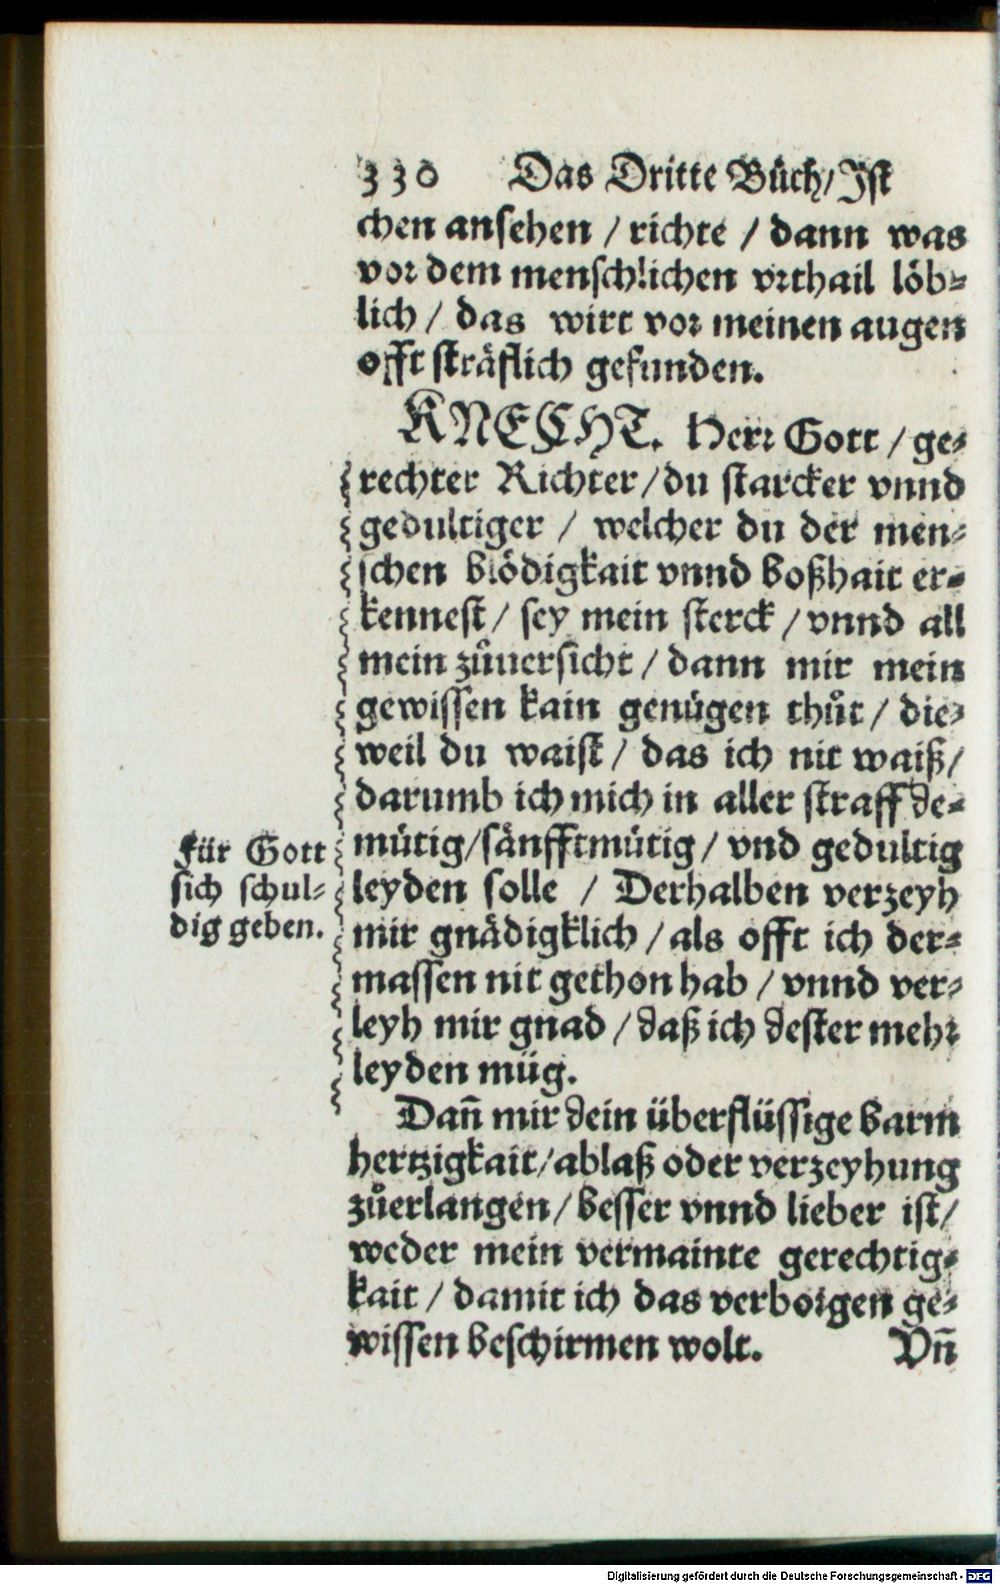 330 Das Dritte Bůch/ Ist
chen ansehen / richte / dann was
vor dem menschlichen vrthail löb-
lich / das wirt vor meinen augen
offt sträflich gefunden.
KNECHT. Herr Gott / ge-
rechter Richter / du starcker vnnd
gedultiger / welcher du der men-
schen blödigkait vnnd boßhait er-
kennest / sey mein sterck / vnnd all
mein zůuersicht / dann mir mein
gewissen kain genügen thůt / die-
weil du waist / das ich nit waiß /
darumb ich mich in aller straff de-
mütig / sänfftmütig / vnd gedultig
leyden solle / Derhalben verzeyh
mir gnädigklich / als offt ich der-
massen nit gethon hab / vnnd ver-
leyh mir gnad / daß ich dester mehr
leyden müg.
Für Gott
sich schul-
dig geben.
Dañ mir dein überflüssige barm
hertzigkait / ablaß oder verzeyhung
zůerlangen / besser vnnd lieber ist /
weder mein vermainte gerechtig-
kait / damit ich das verborgen ge-
wissen beschirmen wolt. Vñ
Digitalisierung gefördert durch die Deutsche Forschungsgemeinschaft - DFG